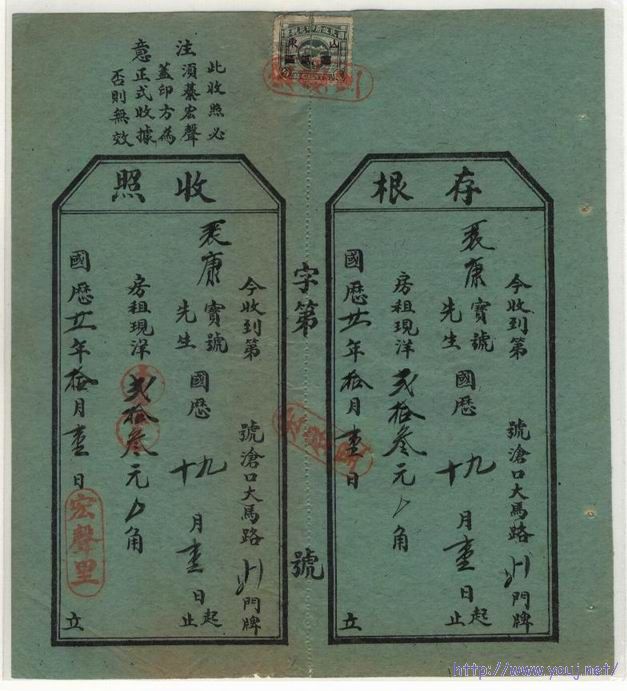 山東
存根
今收到第 號滄口大馬路 門牌
裴康寶號
先生 國歷 十九 月壹日起止
房租現洋弍拾叁元 角
國歷廿一年拾月壹日 立
字第 號
收照
今收到第 號滄口大馬路 門牌
裴康寶號
先生 國歷 十九 月壹日起止
房租現洋弍拾叁元 角
國歷廿一年拾月壹日 立
宏聲里
此收照必
注須蓋宏聲
蓋印方為
意正式收據
否則無效
http://www.youj.net/